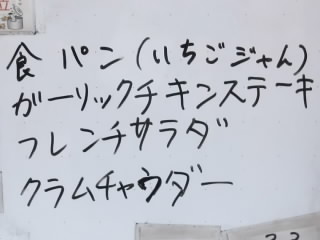 食パン(いちごジャム)
ガーリックチキンステーキ
フレンチサラダ
クラムチャウダー